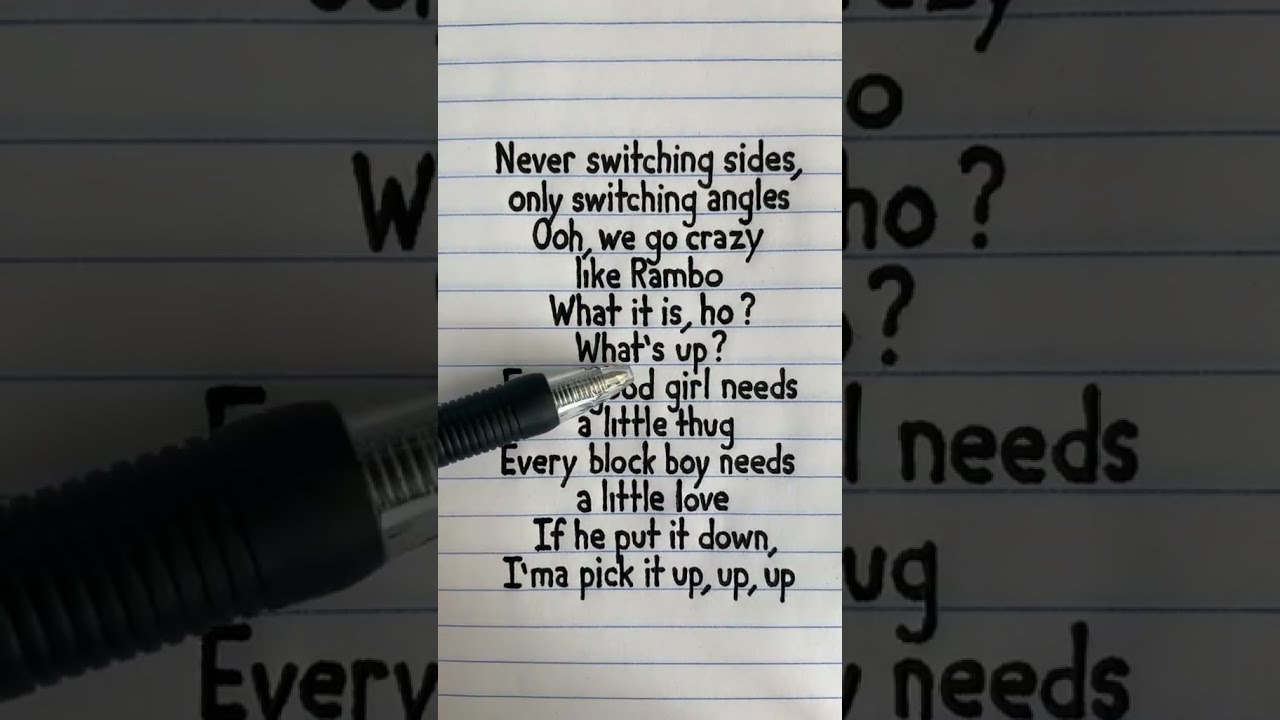 Never switching sides,
only switching angles
Ooh, we go crazy
like Rambo
What it is, ho?
What's up?
girl needs
a little thug
Every block boy needs
a little love
If he put it down,
I'ma pick it up, up, up